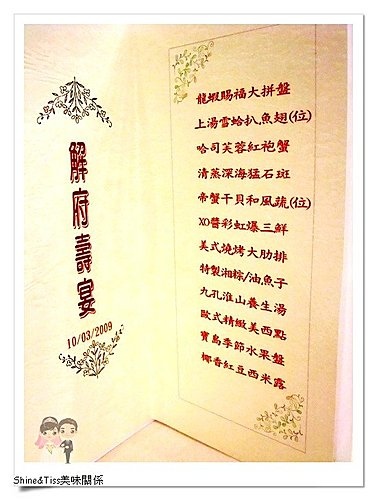 解府壽宴
10/03/2009
龍蝦賜福大拼盤
上湯雪蛤扒.魚翅(位)
哈司芙蓉紅袍蟹
清蒸深海猛石斑
帝蟹干貝和風蔬(位)
XO醬彩虹爆三鮮
美式燒烤大肋排
特製湘粽/油.魚子
九孔淮山養生湯
歐式精緻美西點
寶島季節水果盤
椰香紅豆西米露
Shine&Tiss美味關係